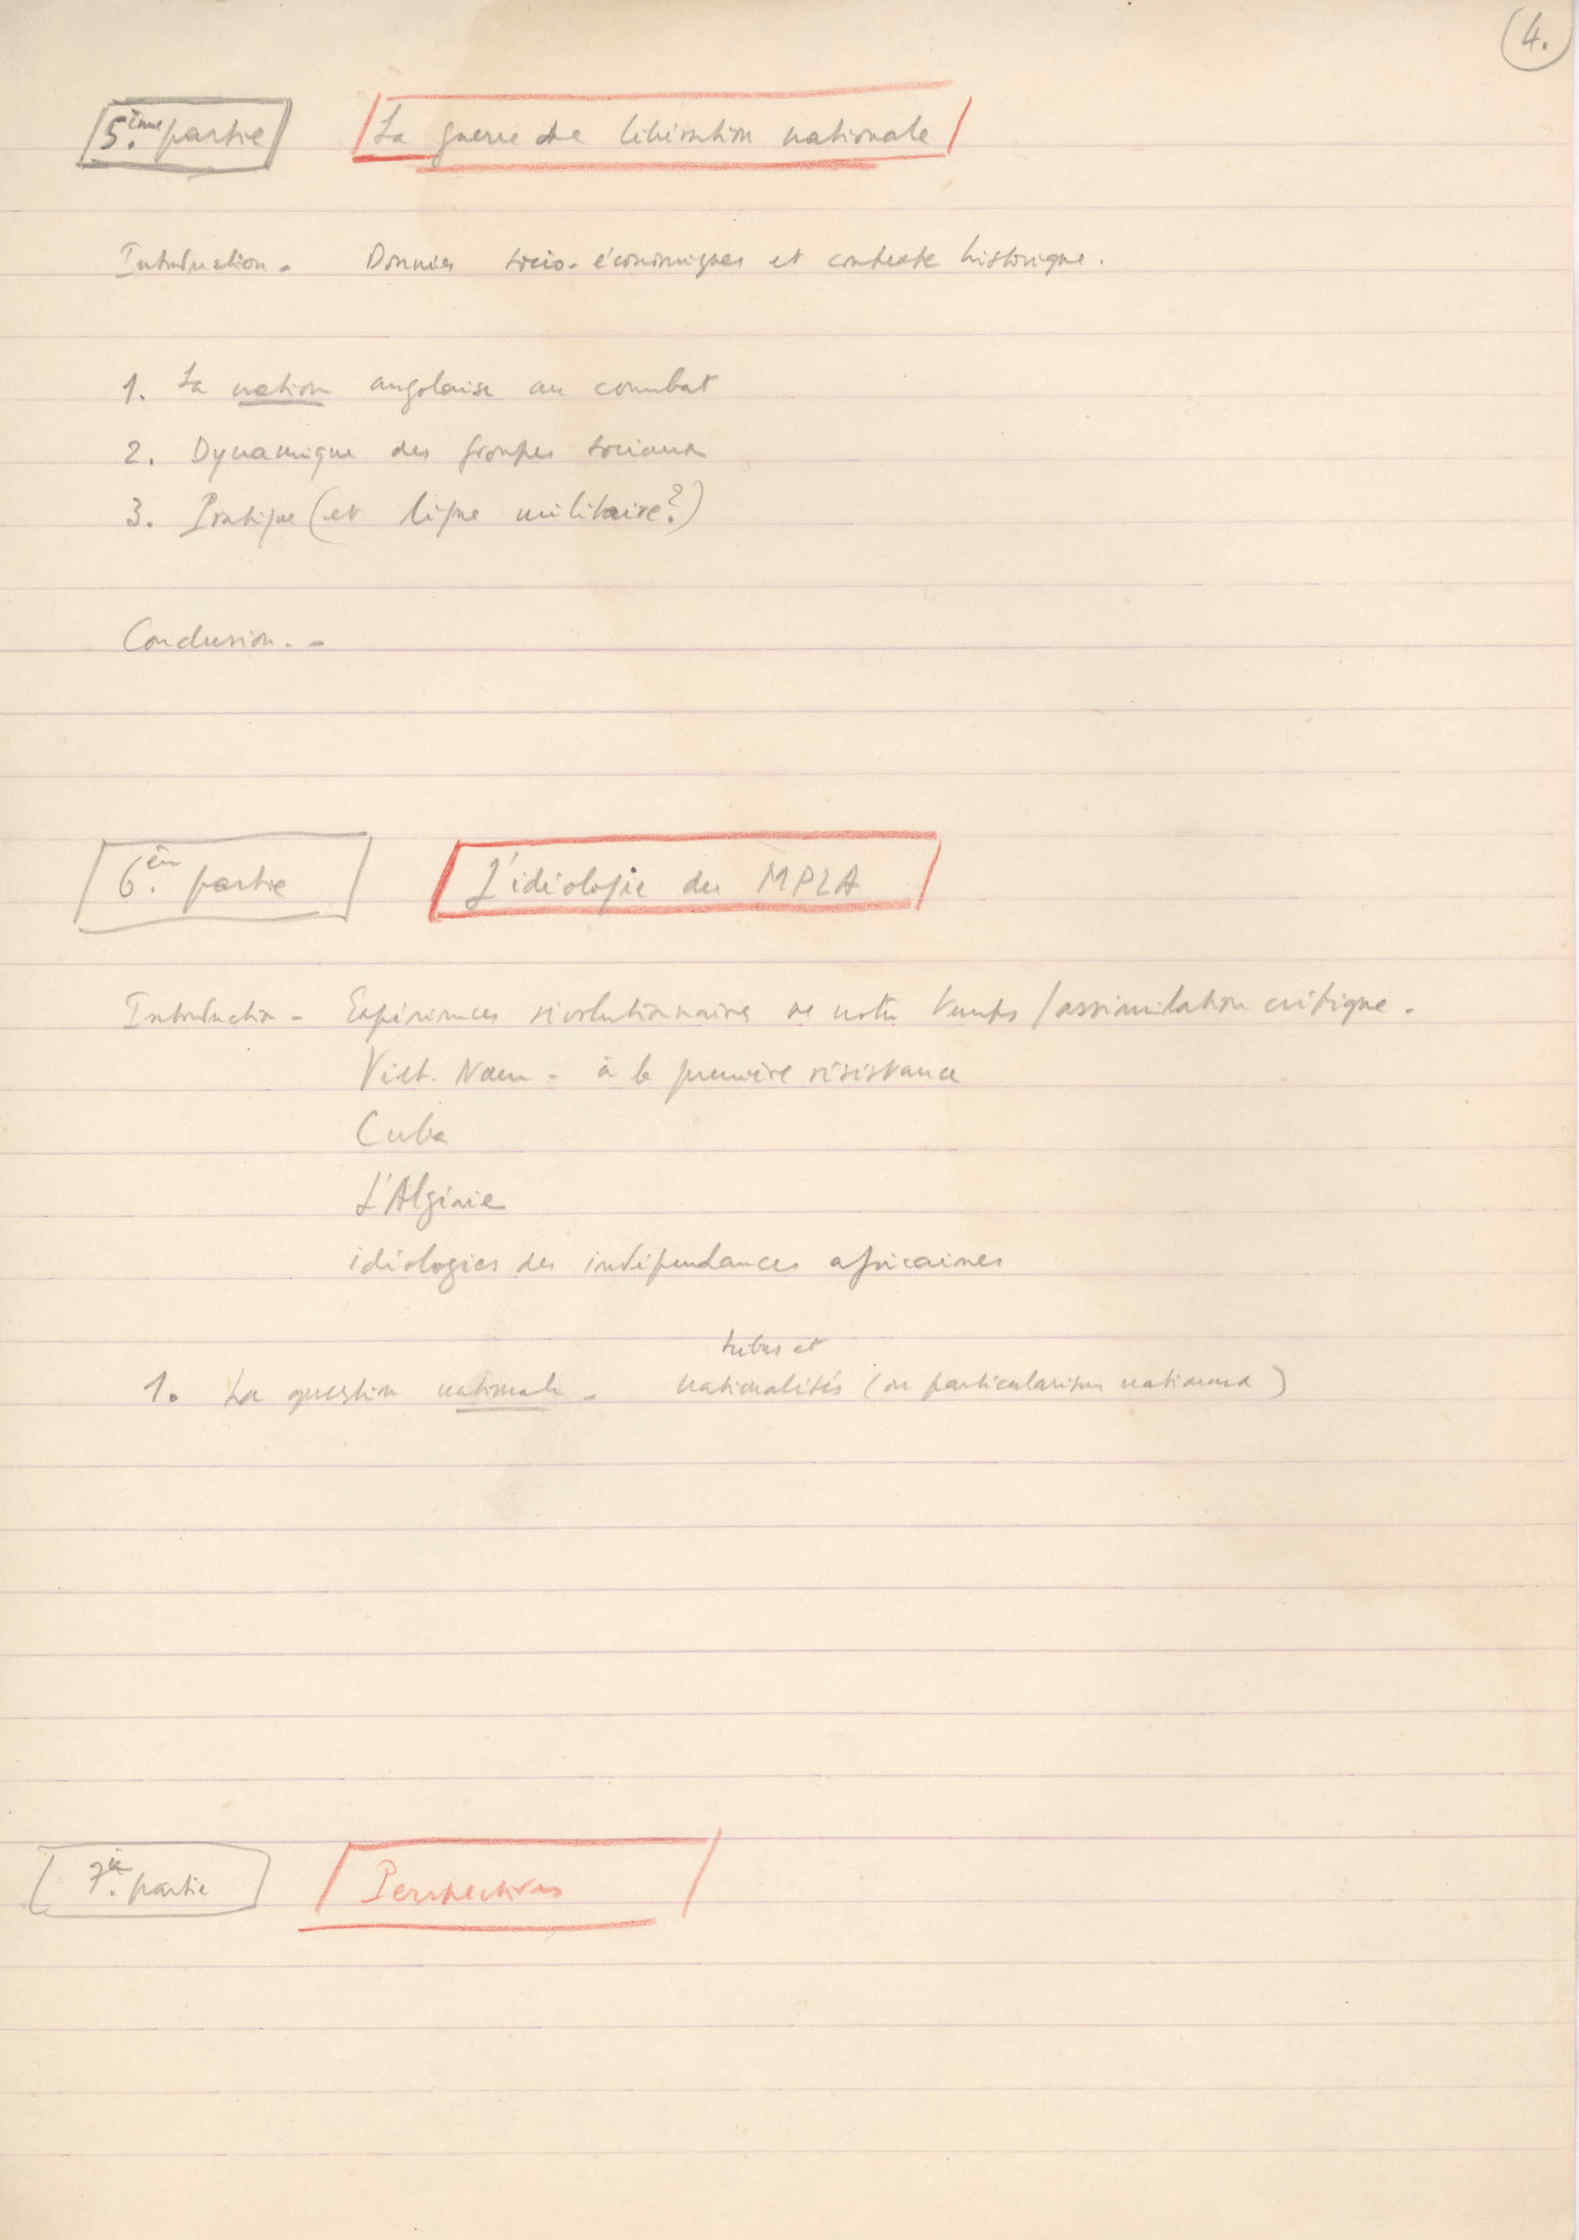 4.
5.ème partie La guerre de libération nationale
Introduction - Données socio-économiques et contexte historique.
1. La nation angolaise au combat
2. Dynamique des groupes sociaux
3. Pratique (et ligne militaire?)
Conclusion. -
6.è partie L'idéologie du MPLA
Introduction - Expériences révolutionnaires de notre temps / assimilation critique.
Viet-Nam - à la première résistance
Cuba
L'Algérie
idéologies des indépendances africaines
tribus et
1. La question nationale - nationalités (ou particularismes nationaux)
7.è partie Perspectives